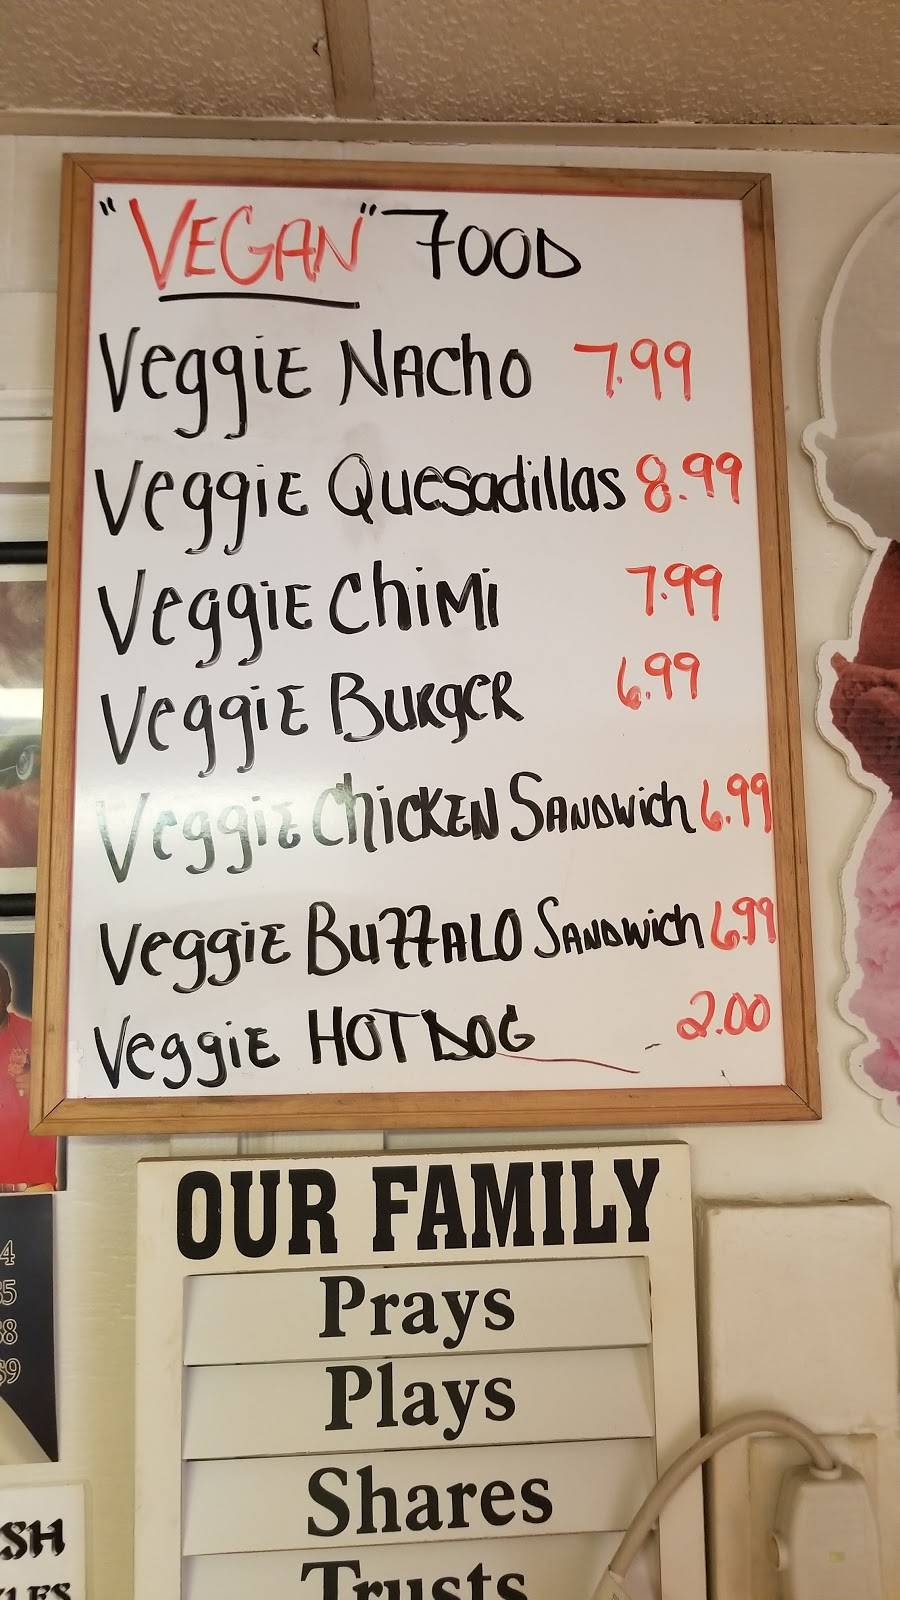 "VEGAN" FOOD
VeggiE NAcho 7.99
VeggiE Quesadillas 8.99
VeggiE ChiMi 7.99
VeggiE BURgER 6.99
VeggiE ChiCKEN SANDWich 6.99
VeggiE BUFFALO SANDWich 6.99
VeggiE HOT DOG 2.00
OUR FAMILY
Prays
Plays
Shares
Trusts
4
$5
$8
$9
SH